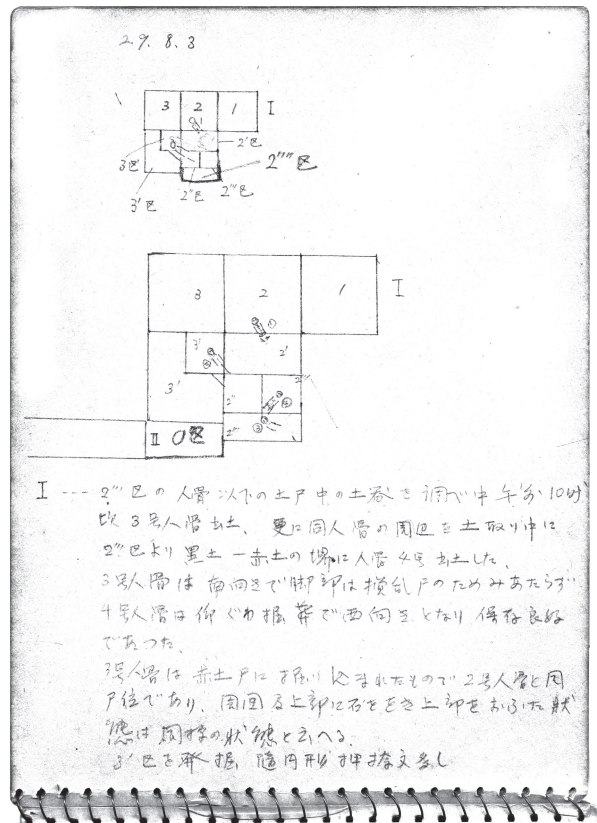 29.8.3
3 2 1 I
2'区
3'区 2''''区
3'区 2''区 2'''区
3 2 1 I
3' 2'
3' 2'' 2'''
2''''
II 0区
I --- 2'''区の人骨以下の土戸中の土器を調べ中午前10時
頃3号人骨出土、更に同人骨の周辺を土取り中に
2'''区より黒土―赤土の境に人骨4号出土した。
3号人骨は南向きで脚部は撹乱戸のためみあたらず
4号人骨は仰ぐわ掘葬で西向きとなり保存良好
であつた。
3号人骨は赤土戸に掘り込まれたもので2号人骨と同
戸位であり、周囲及上部に石をおき上部をおふた状
態は同様の状態と云へる。
3'区を発掘 隋円形押捺文多し